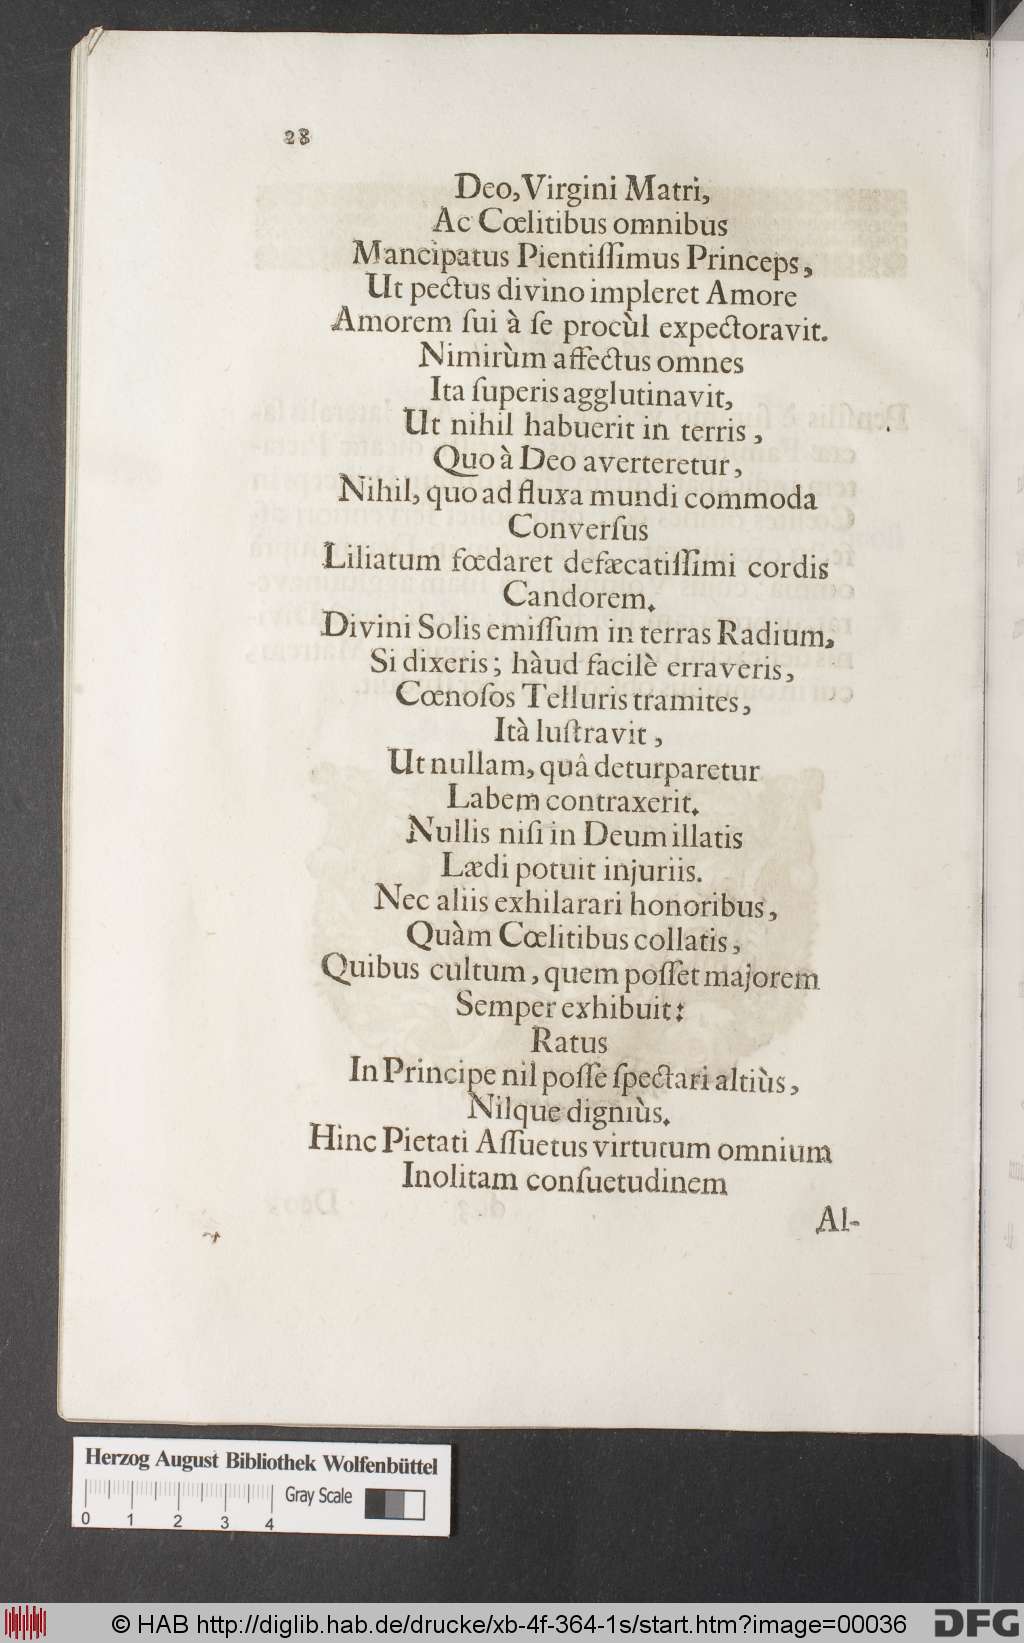 28
Deo, Virgini Matri,
Ac Cœlitibus omnibus
Mancipatus Pientiſſimus Princeps,
Ut pectus divino impleret Amore
Amorem ſui à ſe procùl expectoravit.
Nimirùm affectus omnes
Ita ſuperis agglutinavit,
Ut nihil habuerit in terris,
Quo à Deo averteretur,
Nihil, quo ad fluxa mundi commoda
Converſus
Liliatum fœdaret defæcatiſſimi cordis
Candorem.
Divini Solis emiſſum in terras Radium,
Si dixeris; hàud facilè erraveris,
Cœnoſos Telluris tramites,
Ità luſtravit,
Ut nullam, quâ deturparetur
Labem contraxerit.
Nullis niſi in Deum illatis
Lædi potuit injuriis.
Nec aliis exhilarari honoribus,
Quàm Cœlitibus collatis,
Quibus cultum, quem poſſet majorem
Semper exhibuit:
Ratus
In Principe nil poſſe ſpectari altiùs,
Nilque digniùs.
Hinc Pietati Aſſuetus virtutum omnium
Inolitam conſuetudinem
Al-
Herzog August Bibliothek Wolfenbüttel
Gray Scale
0 1 2 3 4
© HAB http://diglib.hab.de/drucke/xb-4f-364-1s/start.htm?image=00036
DFG